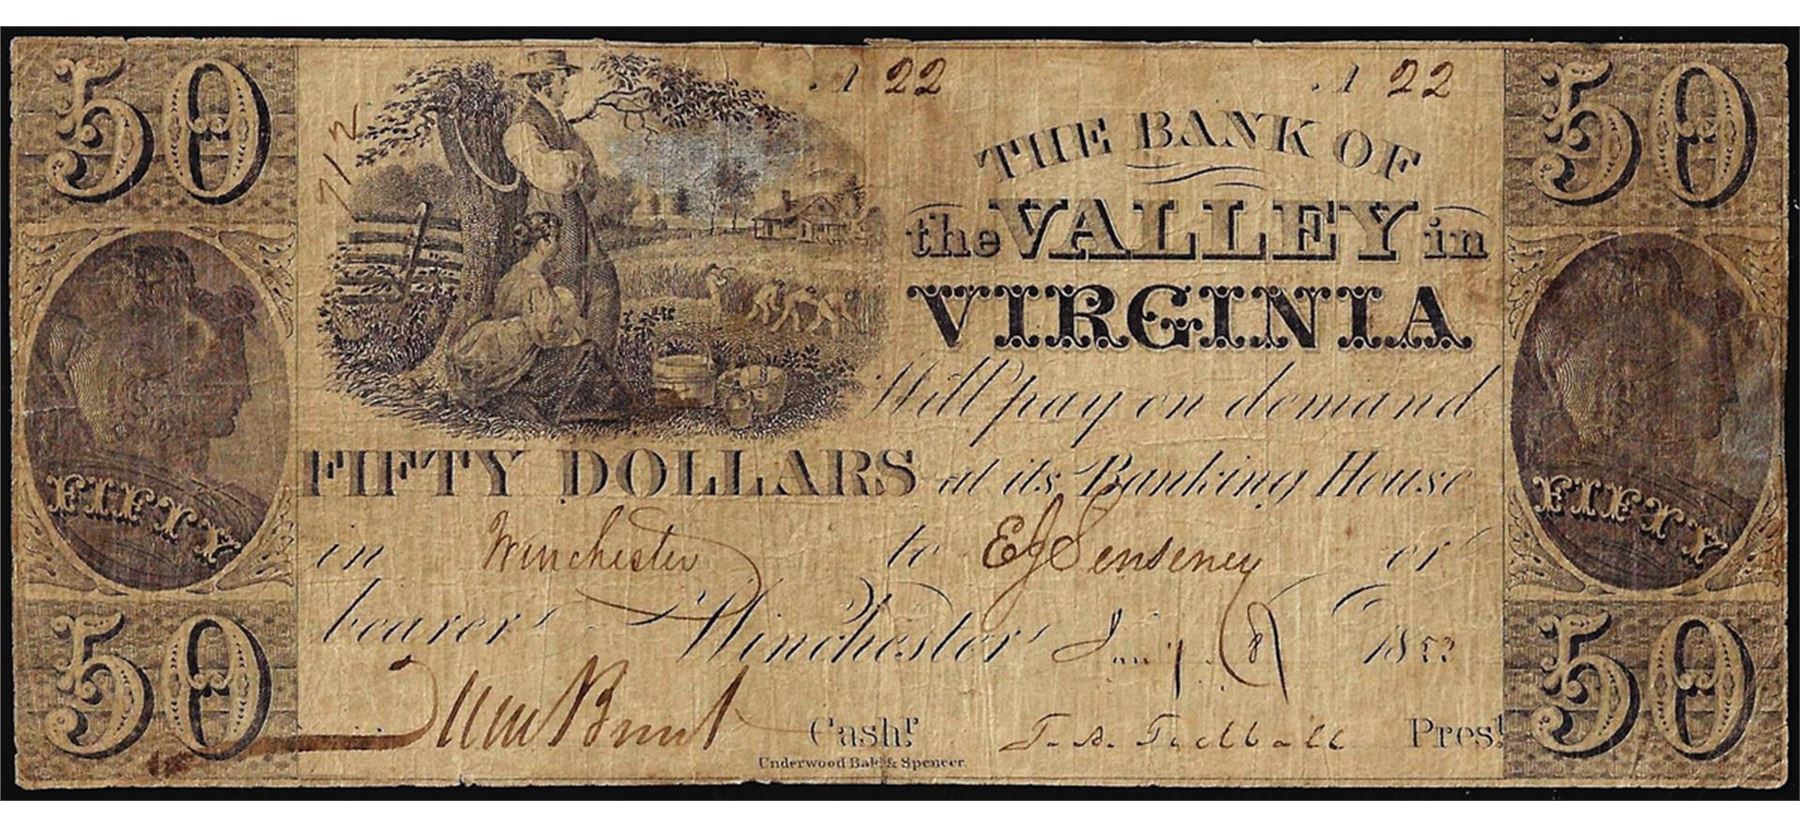 50 50
A 22 A 22
912
THE BANK OF
the VALLEY in
VIRGINIA
Will pay on demand
FIFTY DOLLARS at its Banking House
in Winchester to E J Senseney or
bearer Winchester Jany 8 1853
FIFTY FIFTY
50 50
Wm Brent Cashr. T. A. Tidball Prest.
Underwood Bald & Spencer.